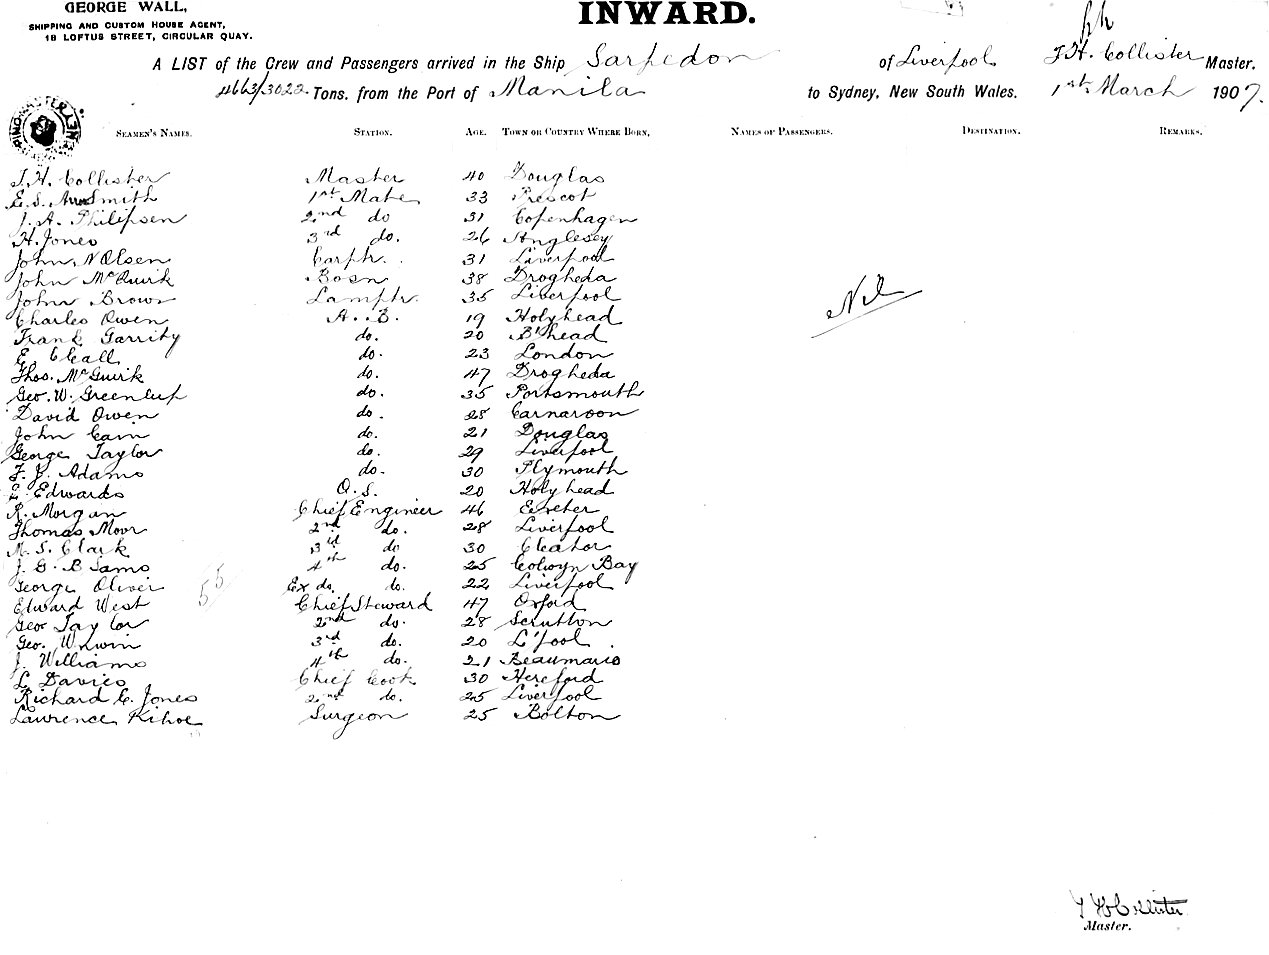 GEORGE WALL,
SHIPPING AND CUSTOM HOUSE AGENT,
18 LOFTUS STREET, CIRCULAR QUAY.
INWARD.
A LIST of the Crew and Passengers arrived in the Ship Sarpedon of Liverpool T.H. Collister Master.
4663/3022 Tons, from the Port of Manila to Sydney, New South Wales. 1st March 1907.
SEAMEN'S NAMES. STATION. AGE. TOWN OR COUNTRY WHERE BORN, NAMES OF PASSENGERS. DESTINATION. REMARKS.
T.H. Collister Master 40 Douglas
E.S. Smith 1st Mate 33 Prescot
J.A. Philipsen 2nd do 31 Copenhagen
H. Jones 3rd do. 26 Anglesey
John N Olsen Carptr. 31 Liverpool
John McQuirk Bosn 38 Drogheda
John Brown Lamptr. 35 Liverpool
Nil
Charles Owen A.B. 19 Holyhead
Frank Garrity do. 20 B'head
E. Chall do. 23 London
Thos. McGuirk do. 47 Drogheda
Geo. W. Greenlup do. 35 Portsmouth
David Owen do. 28 Carnarvon
John Cain do. 21 Douglas
George Taylor do. 29 Liverpool
F. J. Adams do. 30 Plymouth
E. Edwards O.S. 20 Holyhead
R. Morgan Chief Engineer 46 Exeter
Thomas Moor 2nd do. 28 Liverpool
M. S. Clark 3rd do 30 Cleator
J. G. B Sams 4th do. 25 Colwyn Bay
George Oliver Ex do. do. 22 Liverpool
Edward West Chief Steward 47 Oxford
Geor Taylor 2nd do. 28 Scrutton
Geo. W. Irwin 3rd do. 20 L'pool.
J. Williams 4th do. 21 Beaumaris
L Davies Chief Cook 30 Hereford
Richard C. Jones 2nd do. 25 Liverpool
Laurence Kihoe Surgeon 25 Bolton
55
T H Collister
Master.